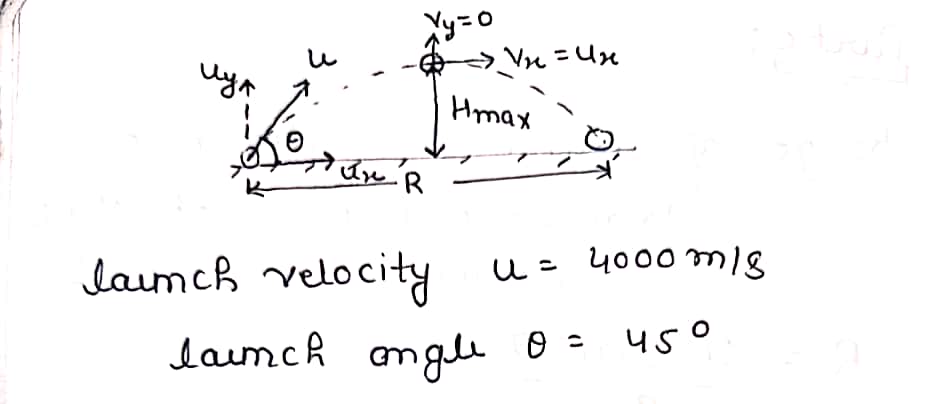 Vy=0
uy
u
Vx = ux
Hmax
θ
ux
R
launch velocity u = 4000 m/s
launch angle θ = 45°